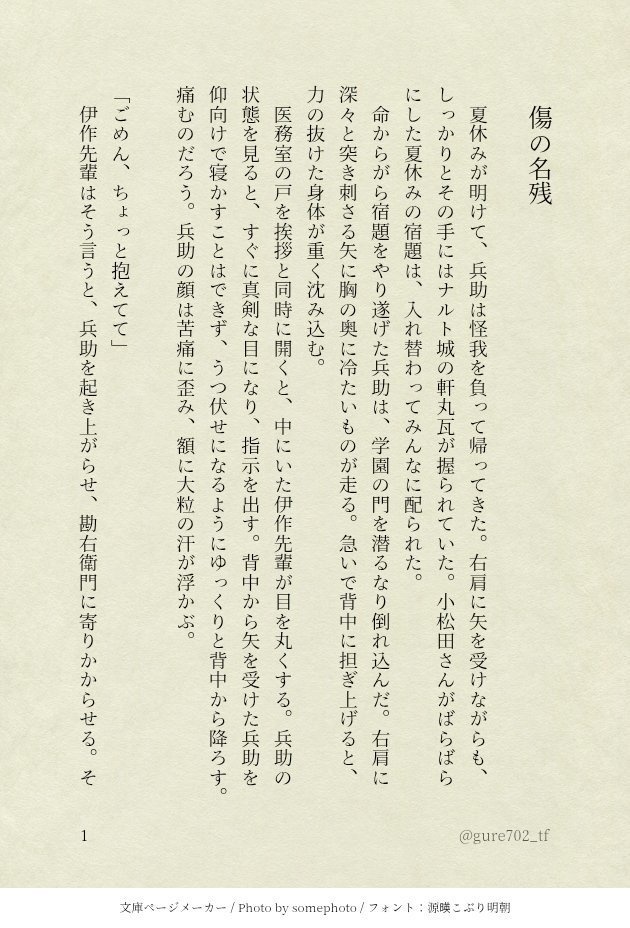 傷の名残
　夏休みが明けて、兵助は怪我を負って帰ってきた。右肩に矢を受けながらも、
しっかりとその手にはナルト城の軒丸瓦が握られていた。小松田さんがばらばら
にした夏休みの宿題は、入れ替わってみんなに配られた。
　命からがら宿題をやり遂げた兵助は、学園の門を潜るなり倒れ込んだ。右肩に
深々と突き刺さる矢に胸の奥に冷たいものが走る。急いで背中に担ぎ上げると、
力の抜けた身体が重く沈み込む。
　医務室の戸を挨拶と同時に開くと、中にいた伊作先輩が目を丸くする。兵助の
状態を見ると、すぐに真剣な目になり、指示を出す。背中から矢を受けた兵助を
仰向けで寝かすことはできず、うつ伏せになるようにゆっくりと背中から降ろす。
痛むのだろう。兵助の顔は苦痛に歪み、額に大粒の汗が浮かぶ。
「ごめん、ちょっと抱えてて」
　伊作先輩はそう言うと、兵助を起き上がらせ、勘右衛門に寄りかからせる。そ
1
@gure702_tf
文庫ページメーカー / Photo by somephoto / フォント：源暎こぶり明朝